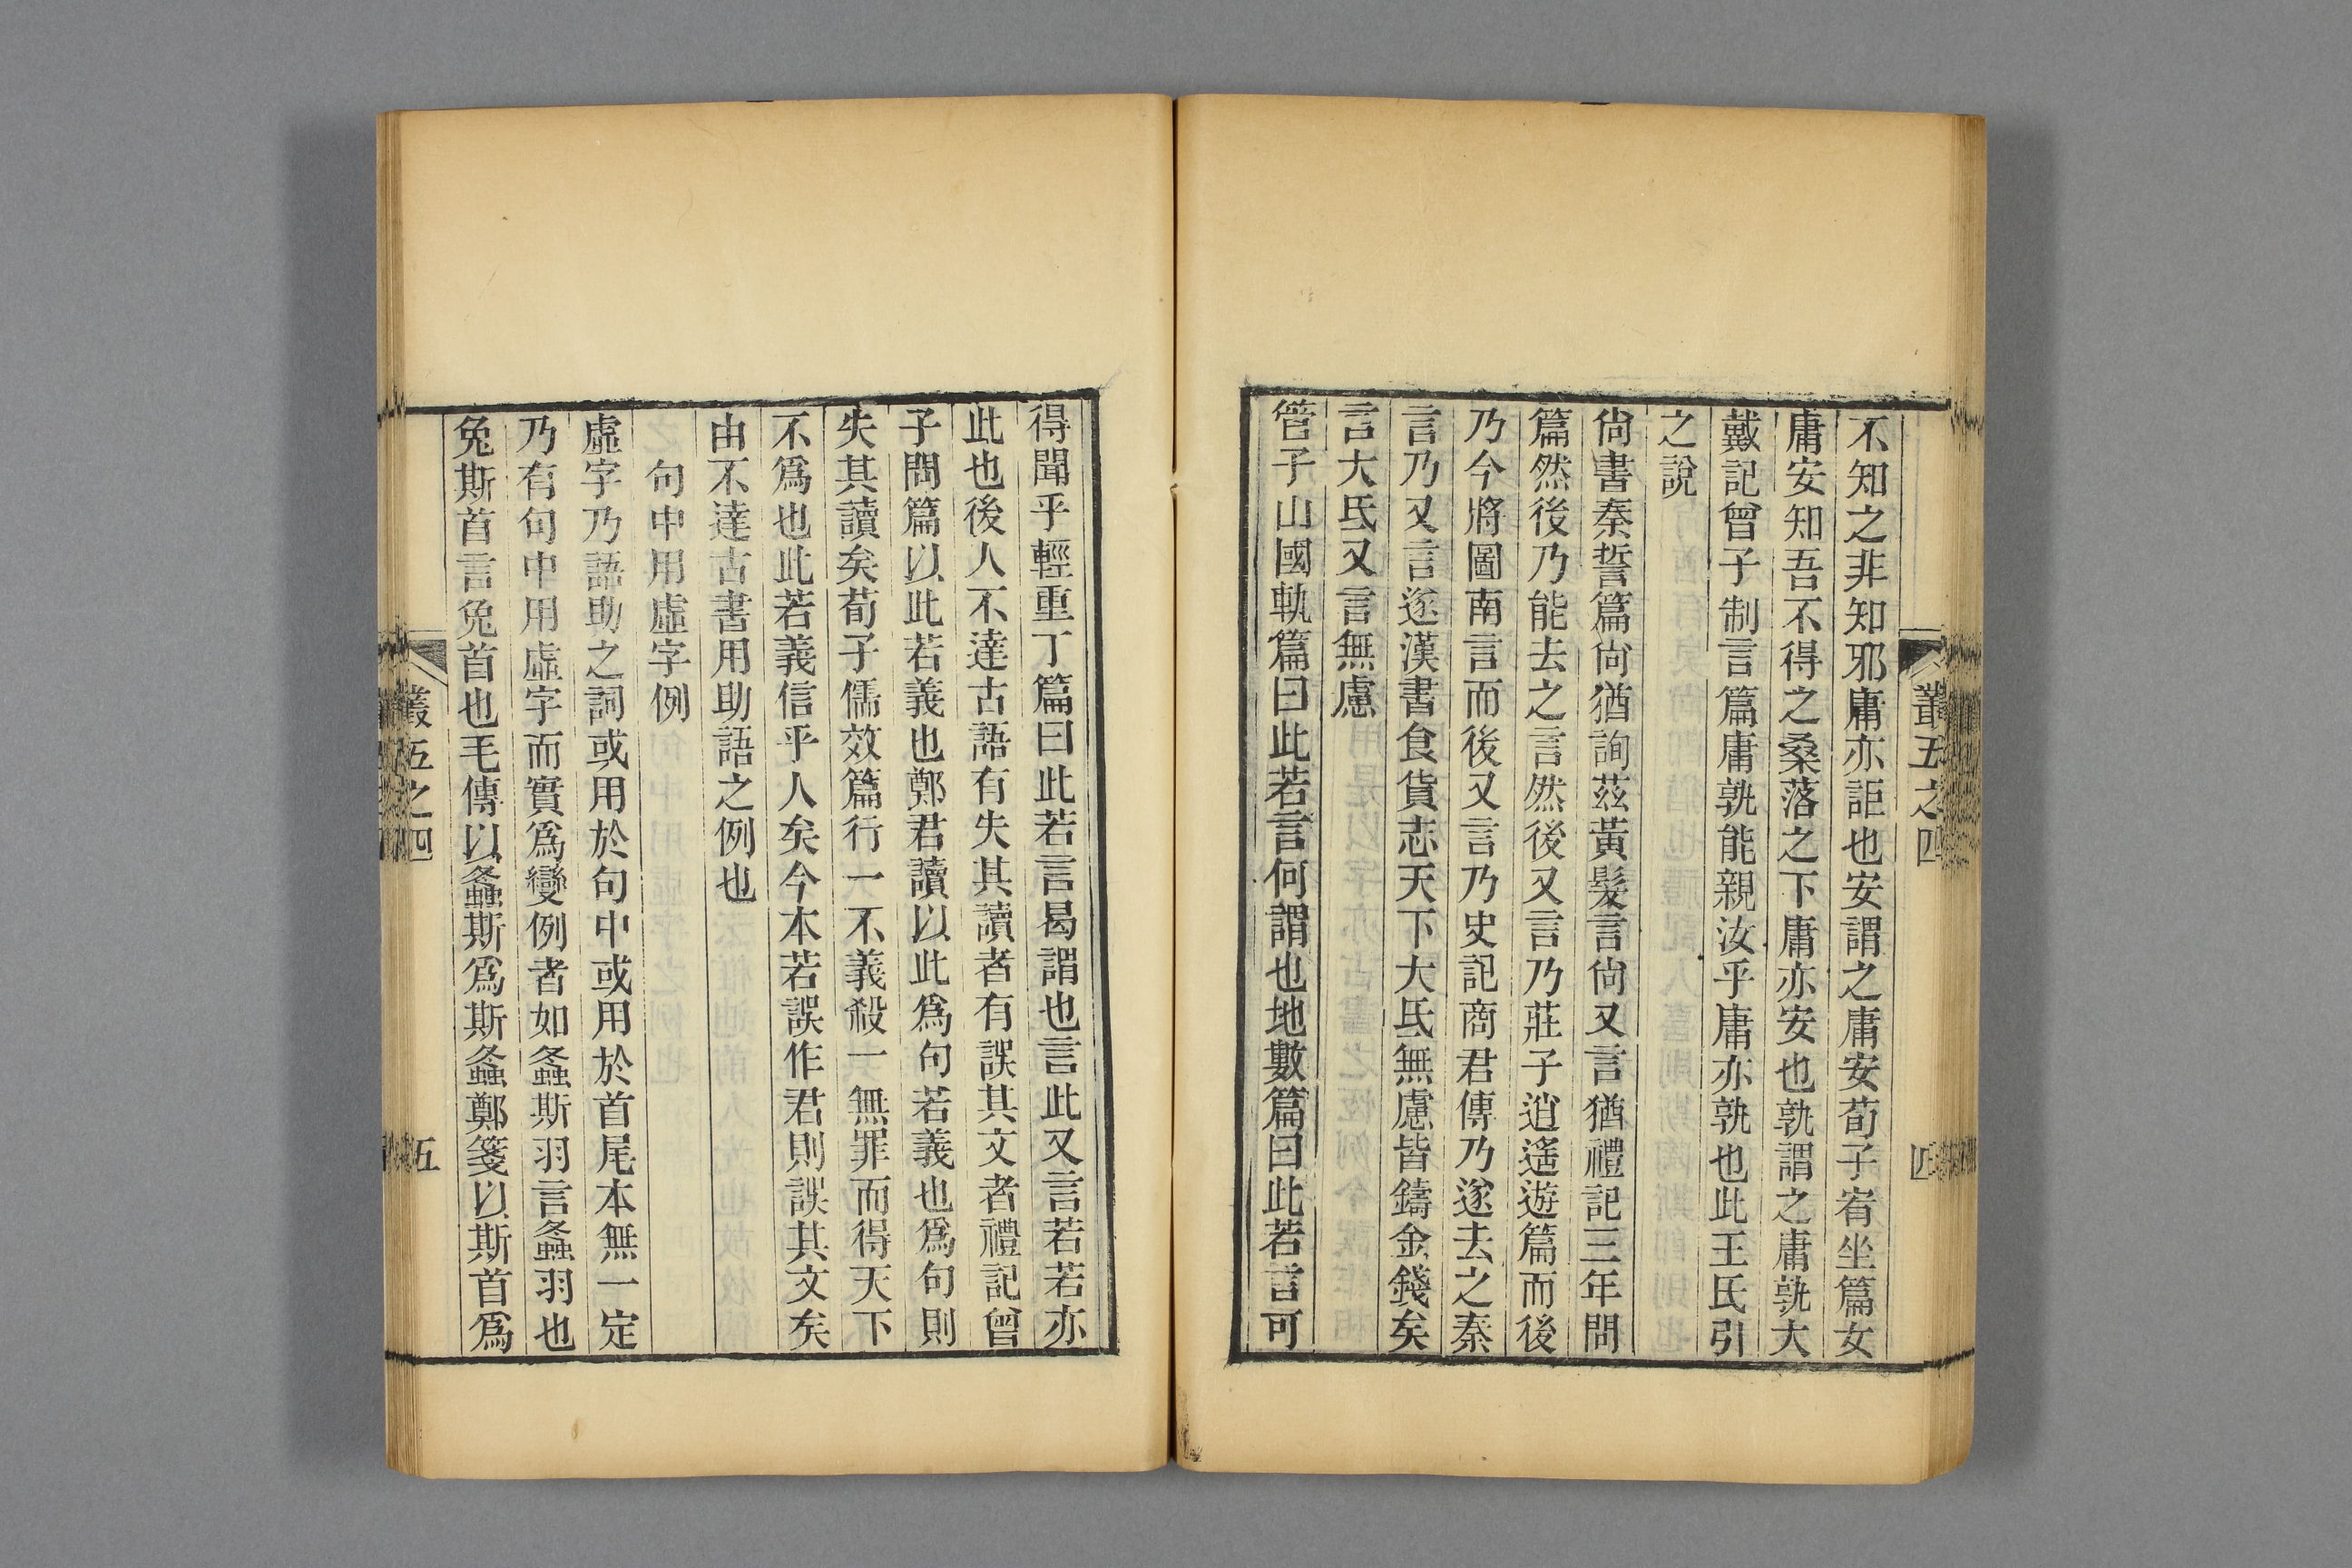 叢五之四
四
不知之非知邪庸亦詎也安謂之庸安荀子宥坐篇女
庸安知吾不得之桑落之下庸亦安也孰謂之庸孰大
戴記曾子制言篇庸孰能親汝乎庸亦孰也此王氏引
之說
尙書秦誓篇尙猶詢茲黃髮言尙又言猶禮記三年問
篇然後乃能去之言然後又言乃莊子逍遙遊篇而後
乃今將圖南言而後又言乃史記商君傳乃遂去之秦
言乃又言遂漢書食貨志天下大氐無慮皆鑄金錢矣
言大氐又言無慮
管子山國軌篇曰此若言何謂也地數篇曰此若言可
得聞乎輕重丁篇曰此若言曷謂也言此又言若若亦
此也後人不達古語有失其讀者有誤其文者禮記曾
子問篇以此若義也鄭君讀以此爲句若義也爲句則
失其讀矣荀子儒效篇行一不義殺一無罪而得天下
不爲也此若義信乎人矣今本若誤作君則誤其文矣
由不達古書用助語之例也
句中用虛字例
虛字乃語助之詞或用於句中或用於首尾本無一定
乃有句中用虛字而實爲變例者如螽斯羽言螽羽也
兔斯首言兔首也毛傳以螽斯爲斯螽鄭箋以斯首爲
叢五之四
五